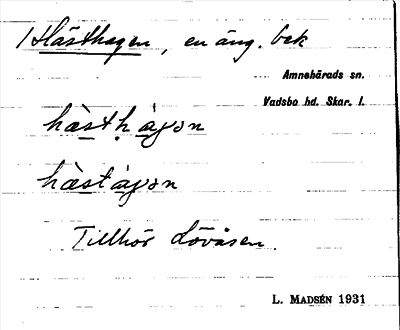 1 Hästhagen, en äng. bek
Amnehärads sn.
Vadsbo hd. Skar. l.
hæ̀stḥàgən
hæ̀stàgən
Tillhör Lövåsen.
L. MADSÉN 1931